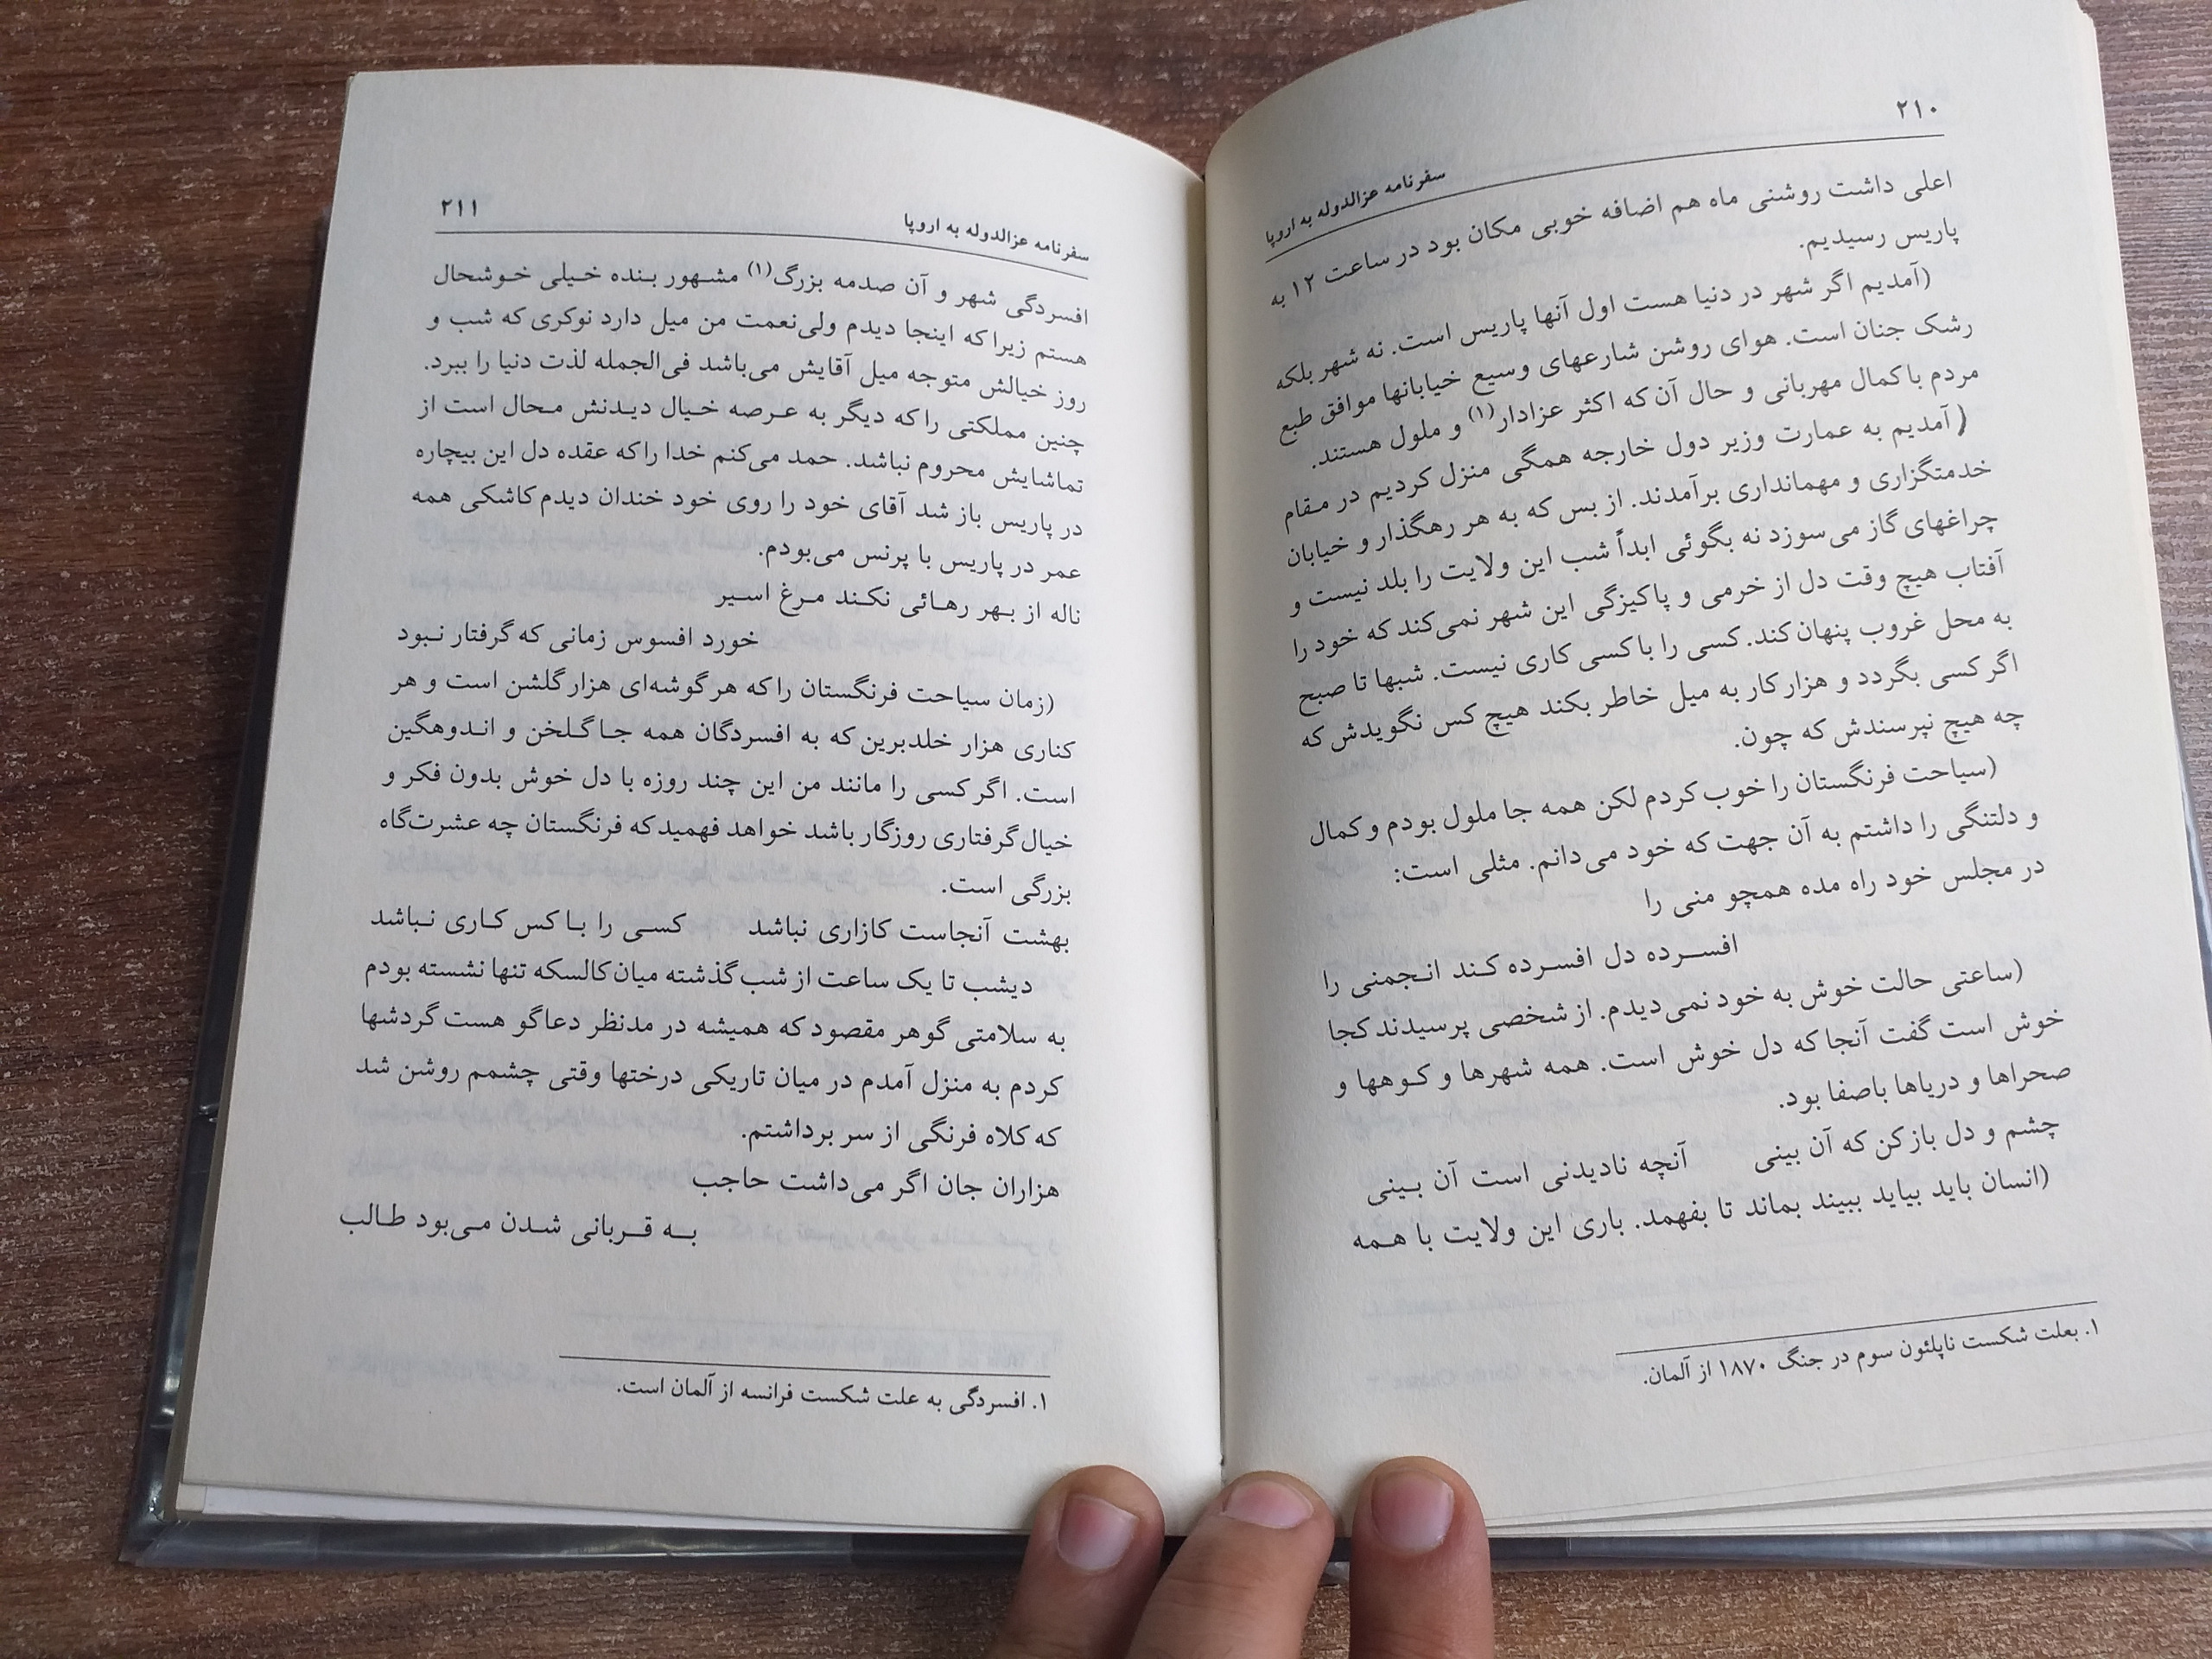 ۲۱۰
سفرنامه عزالدوله به اروپا
اعلی داشت روشنی ماه هم اضافه خوبی مکان بود در ساعت ۱۲ به
پاریس رسیدیم.
(آمدیم اگر شهر در دنیا هست اول آنها پاریس است. نه شهر بلکه
رشک جنان است. هوای روشن شارعهای وسیع خیابانها موافق طبع
مردم با کمال مهربانی و حال آن که اکثر عزادار(۱) و ملول هستند.
(آمدیم به عمارت وزیر دول خارجه همگی منزل کردیم در مقام
خدمتگزاری و مهمانداری برآمدند. از بس که به هر رهگذار و خیابان
چراغهای گاز می‌سوزد نه بگوئی ابداً شب این ولایت را بلد نیست و
آفتاب هیچ وقت دل از خرمی و پاکیزگی این شهر نمی‌کند که خود را
به محل غروب پنهان کند. کسی را با کسی کاری نیست. شبها تا صبح
اگر کسی بگردد و هزار کار به میل خاطر بکند هیچ کس نگویدش که
چه هیچ نپرسندش که چون.
(سیاحت فرنگستان را خوب کردم لکن همه جا ملول بودم و کمال
و دلتنگی را داشتم به آن جهت که خود می‌دانم. مثلی است:
در مجلس خود راه مده همچو منی را
افسرده دل افسرده کند انجمنی را
(ساعتی حالت خوش به خود نمی‌دیدم. از شخصی پرسیدند کجا
خوش است گفت آنجا که دل خوش است. همه شهرها و کوهها و
صحراها و دریاها باصفا بود.
چشم و دل باز کن که آن بینی آنچه نادیدنی است آن بینی
(انسان باید بیاید ببیند بماند تا بفهمد. باری این ولایت با همه
۱. بعلت شکست ناپلئون سوم در جنگ ۱۸۷۰ از آلمان.
سفرنامه عزالدوله به اروپا ۲۱۱
افسردگی شهر و آن صدمه بزرگ(۱) مشهور بنده خیلی خوشحال
هستم زیرا که اینجا دیدم ولی‌نعمت من میل دارد نوکری که شب و
روز خیالش متوجه میل آقایش می‌باشد فی‌الجمله لذت دنیا را ببرد.
چنین مملکتی را که دیگر به عرصه خیال دیدنش محال است از
تماشایش محروم نباشد. حمد می‌کنم خدا را که عقده دل این بیچاره
در پاریس باز شد آقای خود را روی خود خندان دیدم کاشکی همه
عمر در پاریس با پرنس می‌بودم.
ناله از بهر رهائی نکند مرغ اسیر
خورد افسوس زمانی که گرفتار نبود
(زمان سیاحت فرنگستان را که هر گوشه‌ای هزار گلشن است و هر
کناری هزار خلدبرین که به افسردگان همه جا گلخن و اندوهگین
است. اگر کسی را مانند من این چند روزه با دل خوش بدون فکر و
خیال گرفتاری روزگار باشد خواهد فهمید که فرنگستان چه عشرت‌گاه
بزرگی است.
بهشت آنجاست کازاری نباشد کسی را با کس کاری نباشد
دیشب تا یک ساعت از شب گذشته میان کالسکه تنها نشسته بودم
به سلامتی گوهر مقصود که همیشه در مدنظر دعاگو هست گردشها
کردم به منزل آمدم در میان تاریکی درختها وقتی چشمم روشن شد
که کلاه فرنگی از سر برداشتم.
هزاران جان اگر می‌داشت حاجب
به قربانی شدن می‌بود طالب
۱. افسردگی به علت شکست فرانسه از آلمان است.